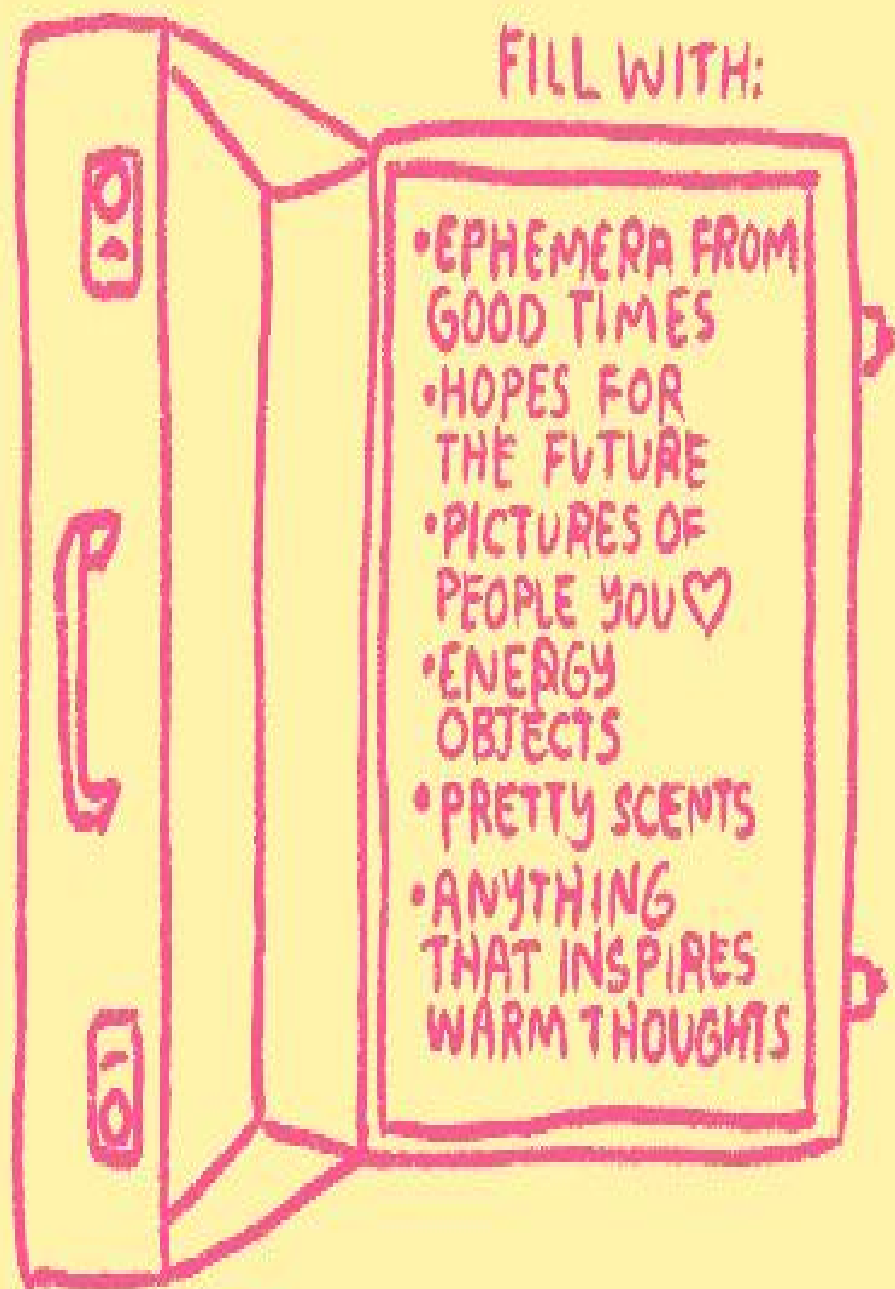 FILL WITH:
•EPHEMERA FROM
GOOD TIMES
•HOPES FOR
THE FUTURE
•PICTURES OF
PEOPLE YOU♡
•ENERGY
OBJECTS
•PRETTY SCENTS
•ANYTHING
THAT INSPIRES
WARM THOUGHTS